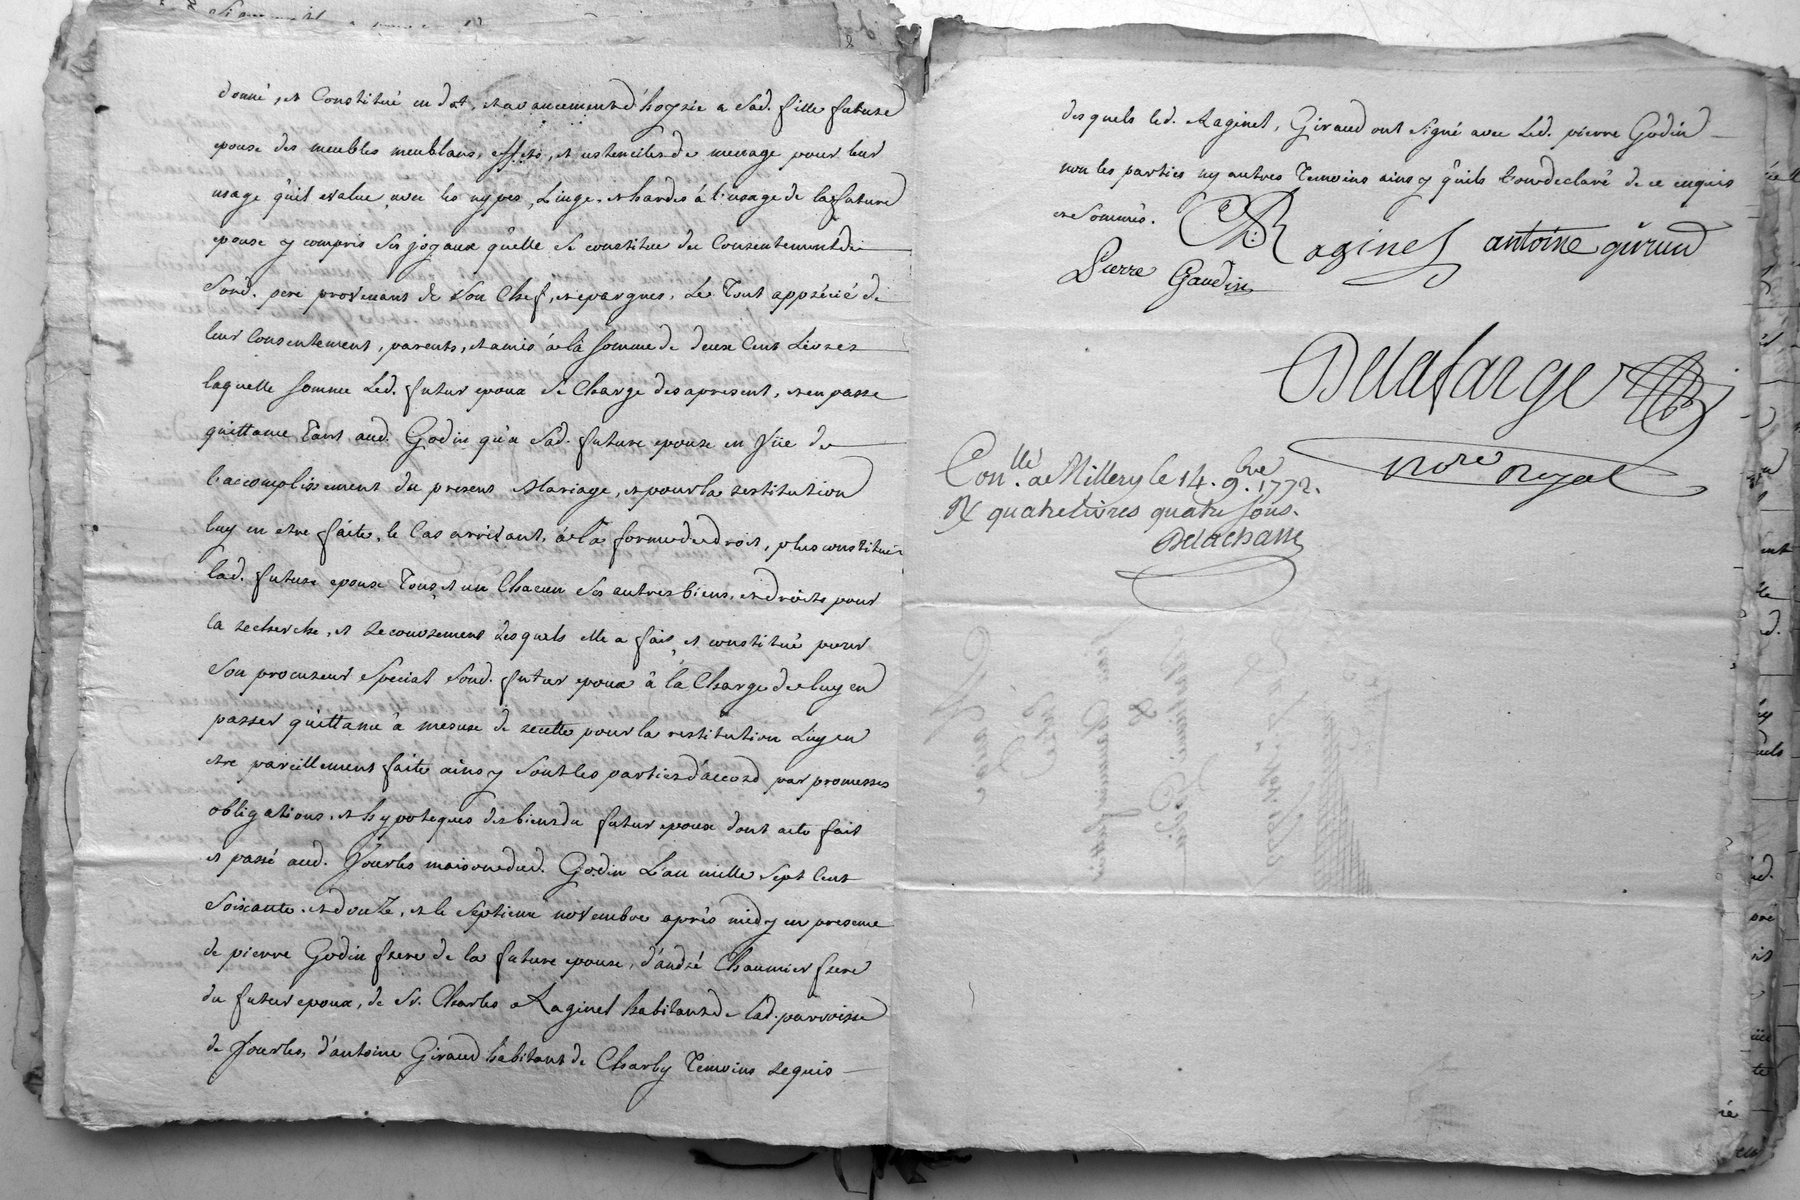 donné, et Constitué en dot, et avancement d'hoyrie a Sad. fille future
epouse des meubles meublans, effets, et ustenciles de menage pour leur
usage qu'il evalue avec les nypes, Linge, et hardes à l'usage de la future
epouse y compris ses joyaux qu'elle se constitue du Consentement de
Sond. pere provenant de Son Chef, et epargnes, Le Tout apprécié de
leur Consentement, parents, et amis à la Somme de deux Cent Livres
laquelle Somme Led. futur epoux se Charge des apresent, et en passe
quittance Tant aud. Godin qu'a Sad. future epouse en vüe de
l'accomplissement du present Mariage, et pour la restitution
luy en etre faite, le Cas arrivant, à la forme du droit, plus constitue
lad. future epouse Tous et un Chacun Ses autres biens, et droits pour
la recherche, et recouvrement desquels elle a fait, et constitué pour
Son procureur Special Sond. futur epoux à la Charge de luy en
passer quittance à mesure de recette pour la restitution Luy en
etre pareillement faite ainsy Sont les parties d'accord par promesses
obligations, et hypoteques des biens du futur epoux dont acte fait
et passé aud. Jourles maison dud. Godin L'an mille Sept Cent
Soixante et douze, et le Septieme novembre après midy en presence
de pierre Godin frere de la future epouse, d'andré Chaumier frere
du futur epoux, de Sr. Charles Raginel habitant de lad. parroisse
de Jourles, d'antoine Giraud habitant de Charly Temoins requis
desquels led. Raginel, Giraud ont Signé avec Led. pierre Godin
non les parties ny autres Temoins ainsy qu'ils l'ont declaré de ce enquis
et Sommés.
Raginel antoine giraud
Pierre Gaudin
Delafarge
Nore royal
Conllé a Millery le 14. 9.bre 1772.
R quatre livres quatre Sous.
Delachass